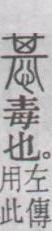 惎毒也。
左傳
用此